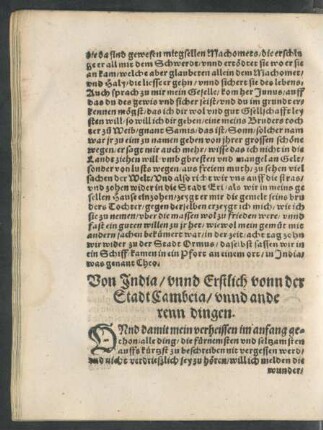 die da sind gewesen mitgsellen Machomets, die erschlu
ge er all mit dem Schwerdt, vnnd ertödtet sie wo er sie
an kam, welche aber glaubeten allein dem Machomet,
vnd Haly, die liesse er gehn, vnnd sichert sie des lebens,
Auch sprach zu mir mein Geselle, kom her Junus, auff
das du des gewis vnd sicher seist, vnd du im grundt er
kennen mögst, das ich dir wol vnd gut Gsellschafft ley
sten will, so will ich dir geben, eine meins Bruders toch
ter zü Weib, gnant Samis, das ist, Sonn, solcher nam
war jr zu ein zu namen geben von jhrer grossen schöne
wegen, er sagt mir auch mehr, wisse das ich nicht in die
Landt ziehen will vmb gbresten vnd mangel an Gelt,
sonder von lusts wegen, aus freiem muth, zu sehen viel
sachen der Welt, Vnd also richt wir vns auff die stras,
vnd zohen wider in die Stadt Eri, als wir in meins ge
sellen Hause einzohen, zeygt er mir die gemelt seins bru
ders Tochter, gegen derselben erzeygt ich mich, wie ich
sie zu nemen, vber die massen wol zu frieden were, vnnd
fast ein guten willen zu jhr het, wiewol mein gemüt mit
andern sachen bekümert war in der zeit, acht tag zohn
wir wider zu der Stadt Ormus, daselbst sassen wir in
ein Schiff kamen in ein Port an einem ort, in India,
was genant Cheo.
Von India / vnnd Erstlich vonn der
Stadt Cambeia / vnnd ande
renn dingen.
VNd damit mein verheissen im anfang ge-
schon, alle ding, die fürnemsten vnd seltzamsten
auffs kürtzst zu beschreiben nit vergessen werd,
vnd nicht verdrieslich sey zu hören, will ich melden die
wunder,